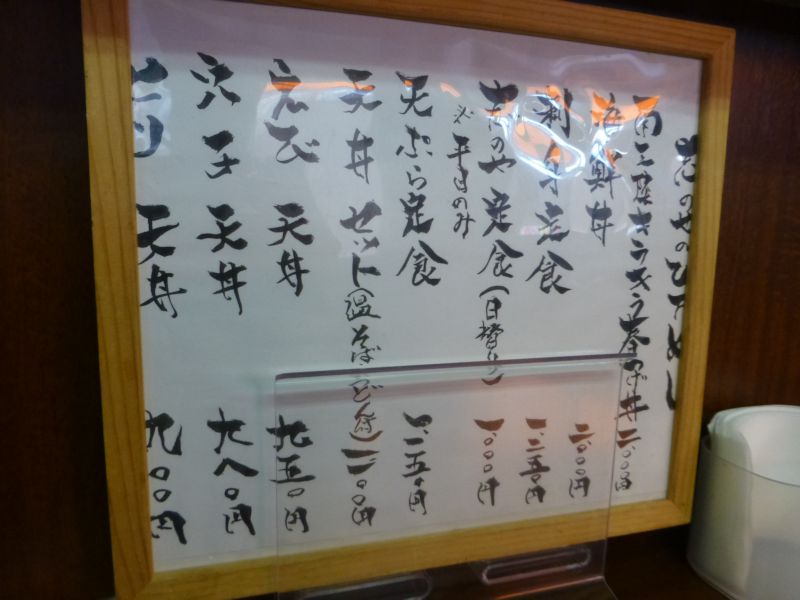 志のやのひるめし
南三陸キラキラ春つげ丼 二、〇〇〇円
海鮮丼 二、〇〇〇円
刺身定食 一、二五〇円
志のや定食（日替り） 一、〇〇〇円
※平日のみ
天ぷら定食 一、一五〇円
天丼セット（温そば・うどん付） 一、一〇〇円
えび天丼 九五〇円
穴子天丼 九八〇円
天丼 九〇〇円